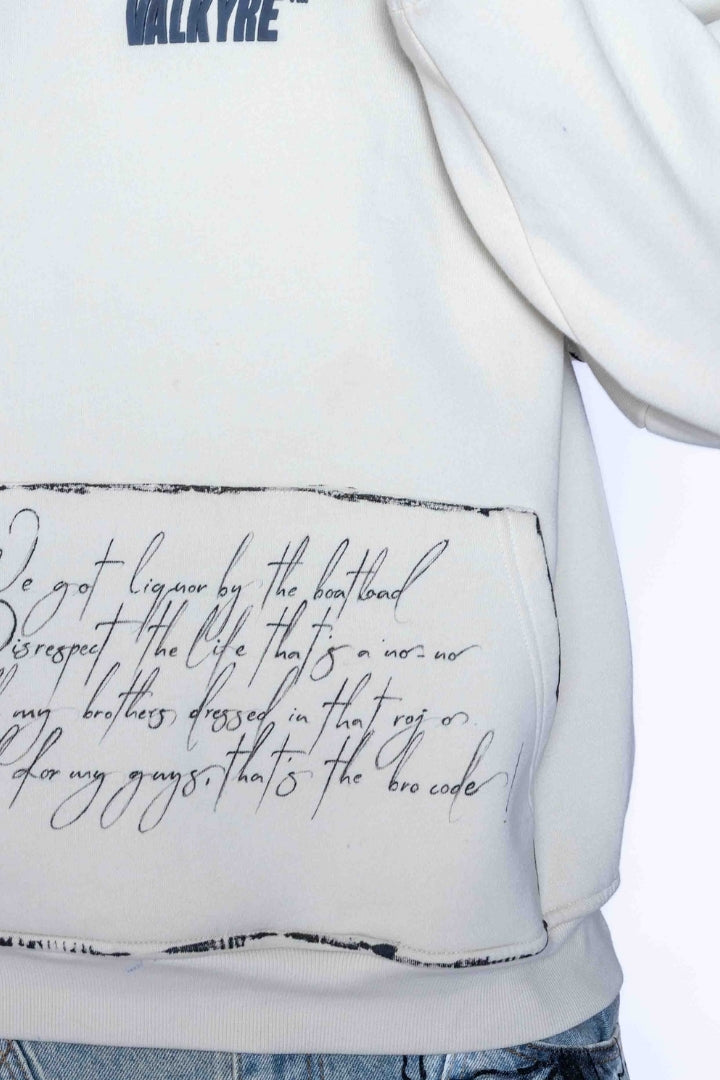 VALKYRE
We got liquor by the boatload
Disrespect the life that's a no-no
my brothers dressed in that rojo
for my guys, that's the bro code!